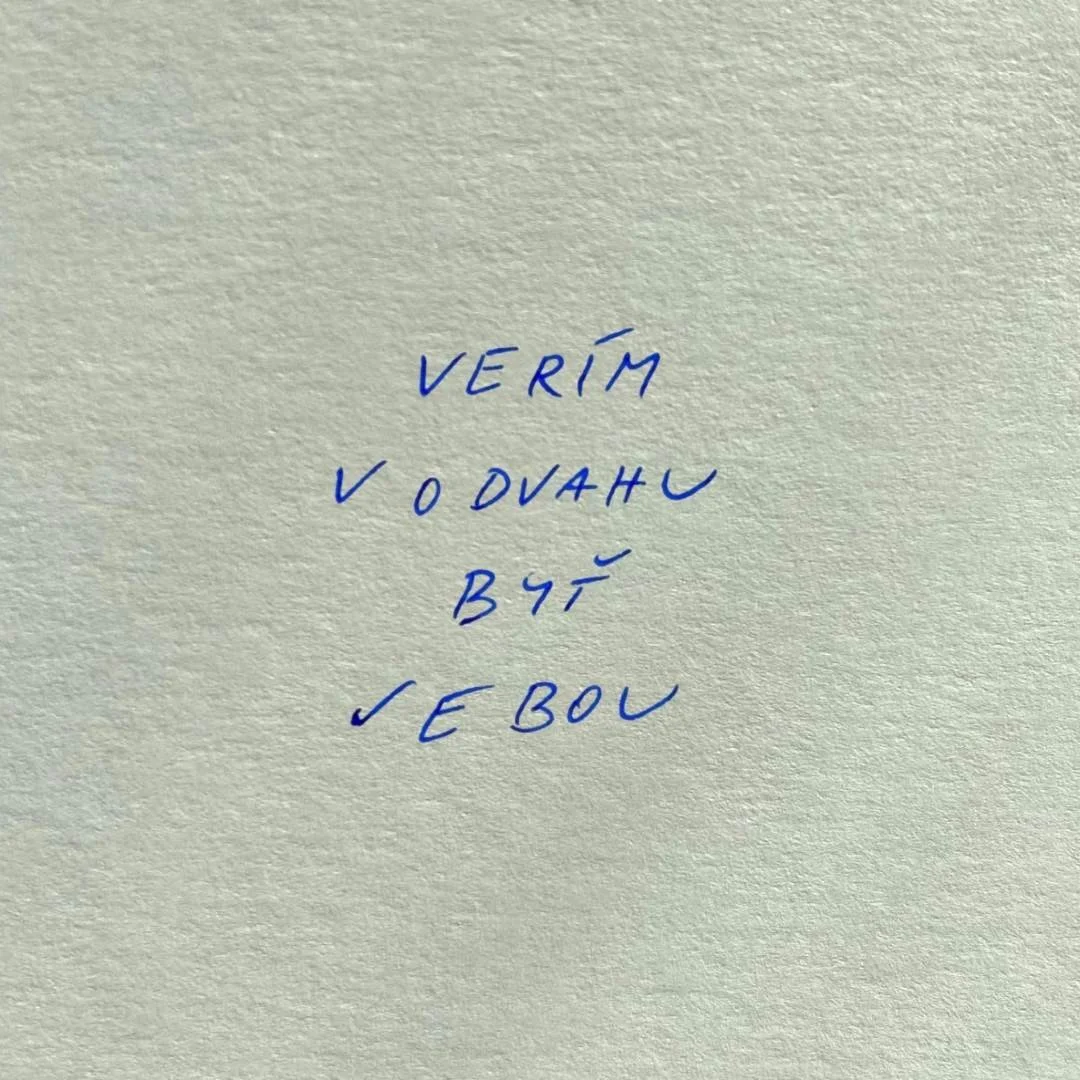 VERÍM
V ODVAHU
BYŤ
SEBOU